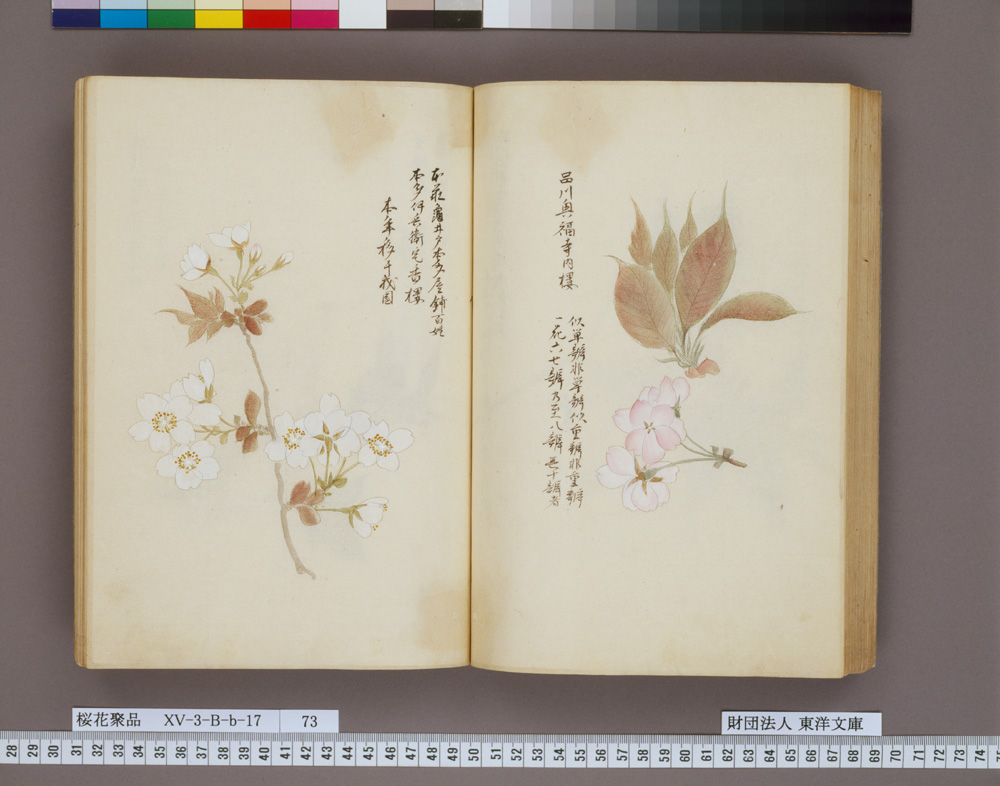 品川奥福寺内桜
似単瓣非単瓣似重瓣非重瓣
一花六七瓣乃至八瓣無十瓣者
本多伊兵衛宅香桜
本年移于我園
桜花聚品 XV-3-B-b-17 73
財団法人 東洋文庫
28 29 30 31 32 33 34 35 36 37 38 39 40 41 42 43 44 45 46 47 48 49 50 51 52 53 54 55 56 57 58 59 60 61 62 63 64 65 66 67 68 69 70 71 72 73 74